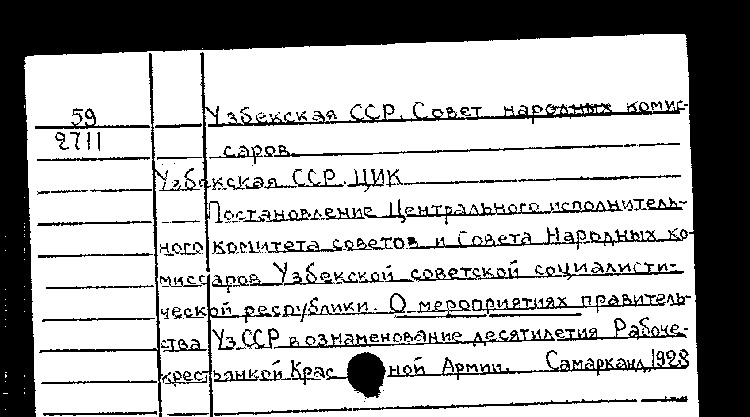 59 Узбекская ССР. Совет народных комис-
2711 саров.
Узбекская ССР. ЦИК
Постановление Центрального исполнитель-
ного комитета советов и Совета Народных ко-
миссаров Узбекской советской социалисти-
ческой республики. О мероприятиях правитель-
ства УзССР в ознаменование десятилетия Рабоче-
крестьянкой Крас ной Армии. Самарканд, 1928